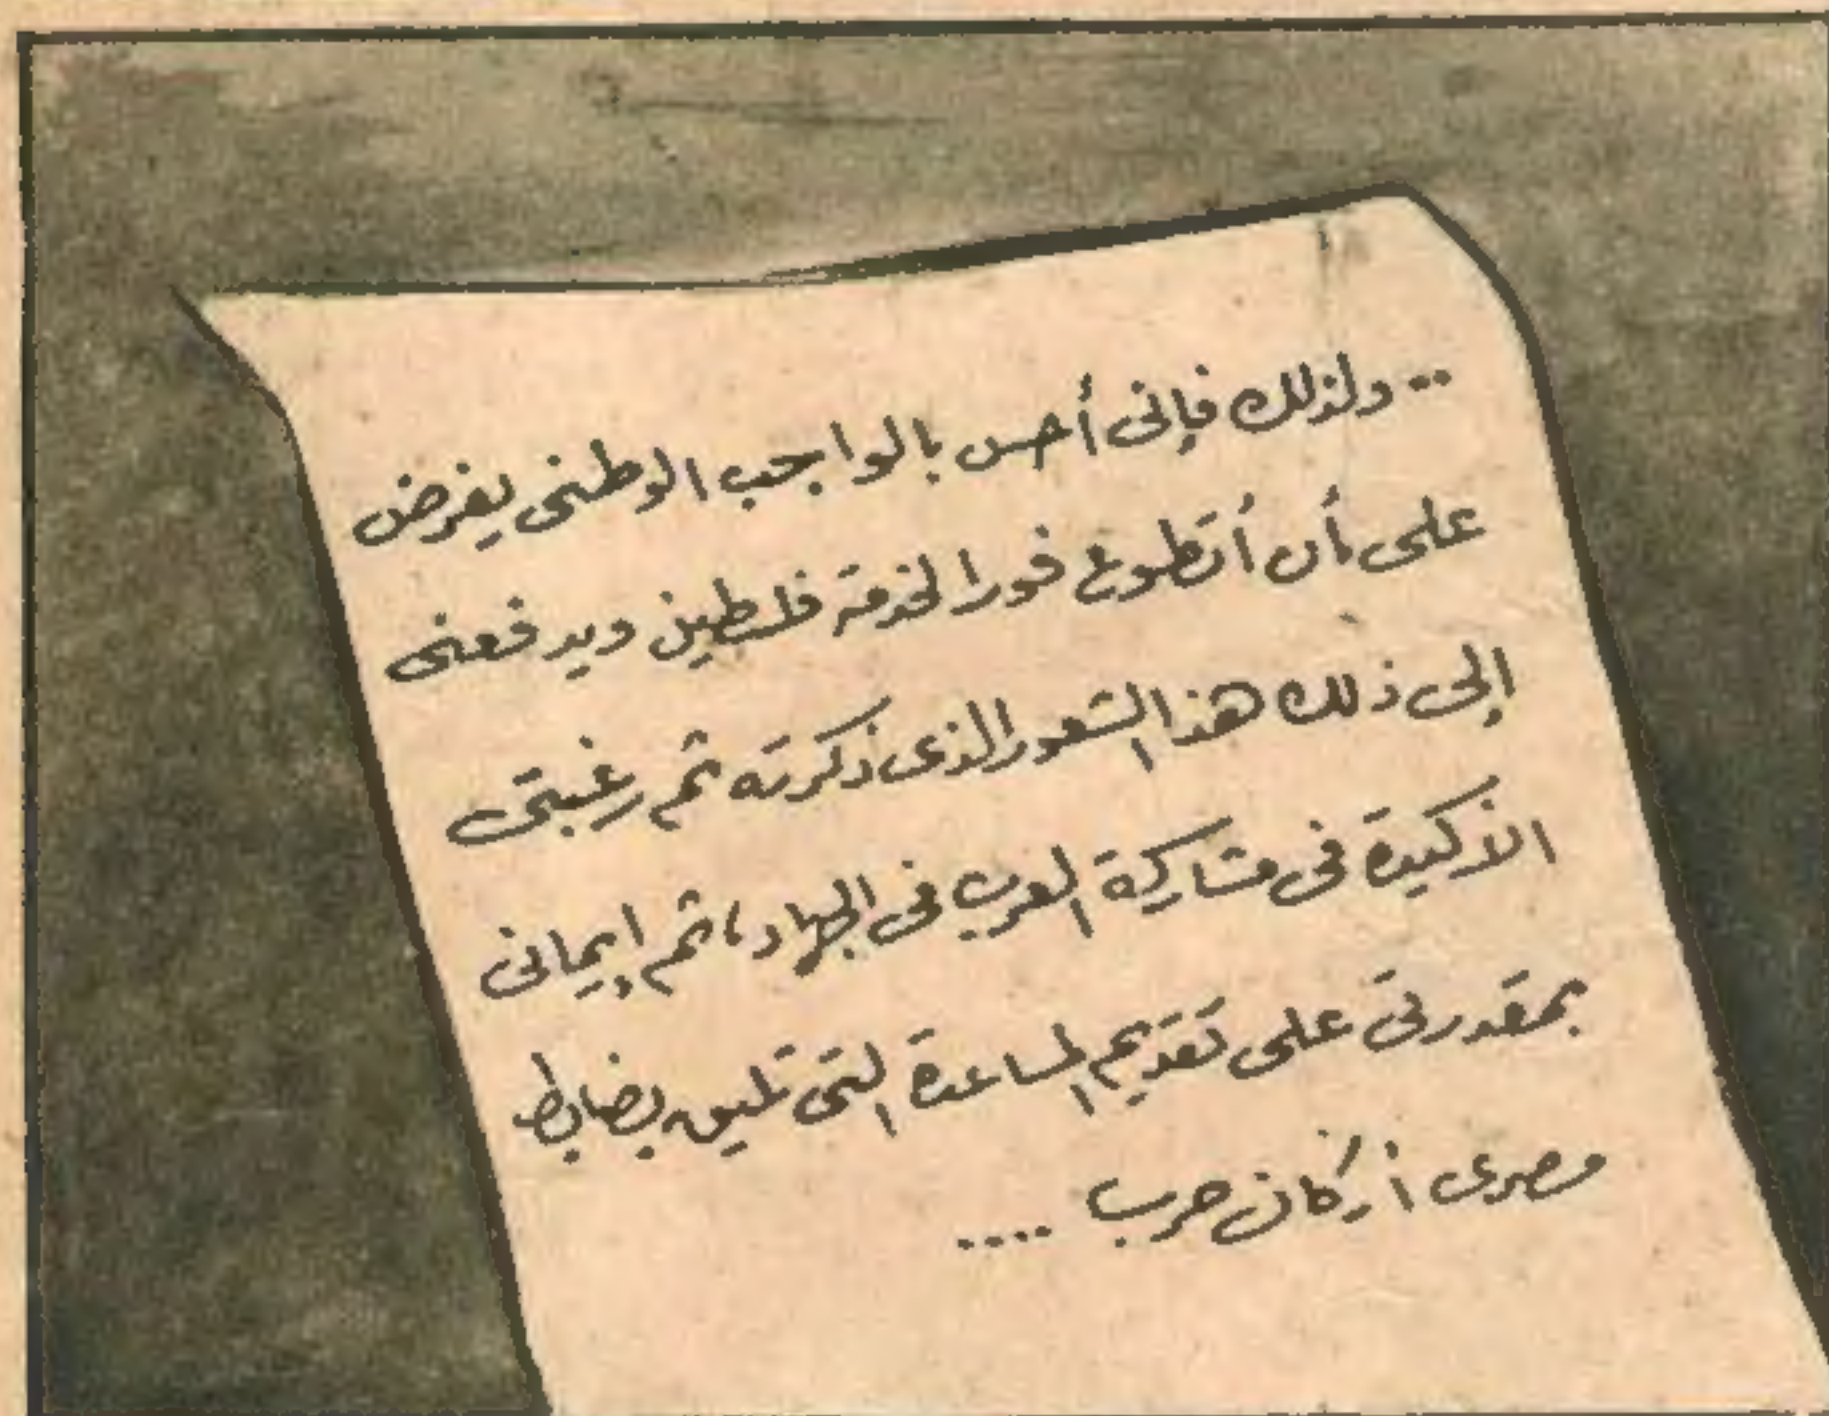 .. ولذلك فإنى أحس بالواجب الوطنى يفرض
على أن أتطوع فورا لخدمة فلسطين ويدفعنى
إلى ذلك هذا الشعور الذى ذكرته ثم رغبتى
الأكيدة فى مشاركة العرب فى الجهاد، ثم إيمانى
بمقدرتى على تقديم المساعدة التى تليق بضابط
مصرى أركان حرب ....